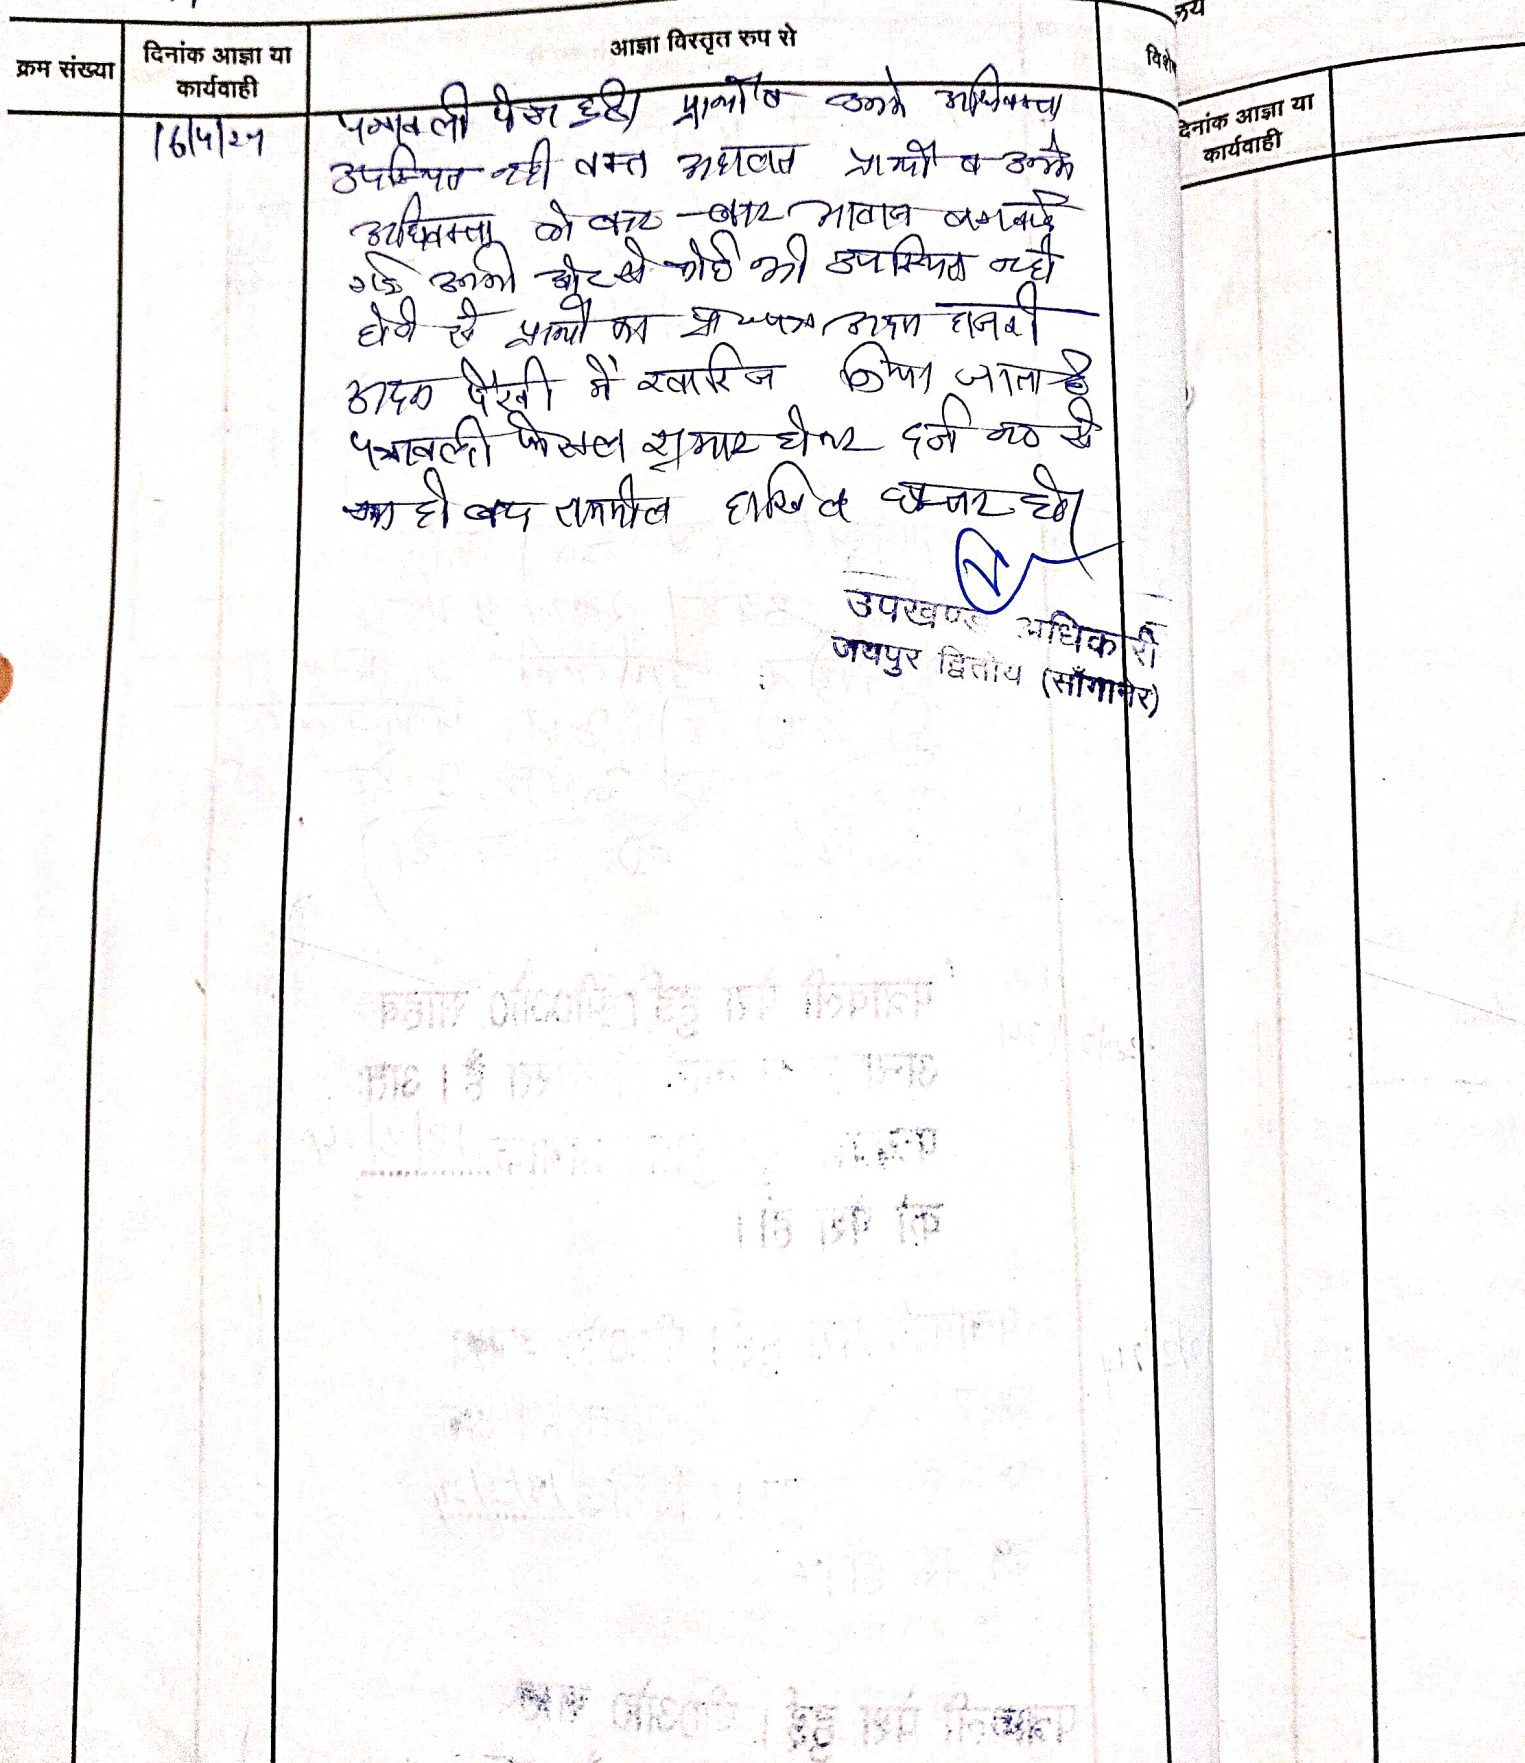 लय
क्रम संख्या
दिनांक आज्ञा या
कार्यवाही
आज्ञा विस्तृत रुप से
विशे
देनांक आज्ञा या
कार्यवाही
16/4/24
पत्रावली पेश हुई। प्रार्थी व उनके अधिवक्ता
उपस्थित नही वक्त अदालत प्रार्थी व उनके
अधिवक्ता को बार-बार आवाज लगवाई
गई उनकी ओर से कोई भी उपस्थित नही
होने से प्रार्थी का प्रा०पत्र अदम हाजरी
अदम पैरवी में खारिज किया जाता है
पत्रावली फैसल शुमार होकर दर्ज नं० से
कम हो बाद तकमील दाखिल दफ्तर हो।
उपखण्ड अधिकारी
जयपुर द्वितीय (साँगानेर)